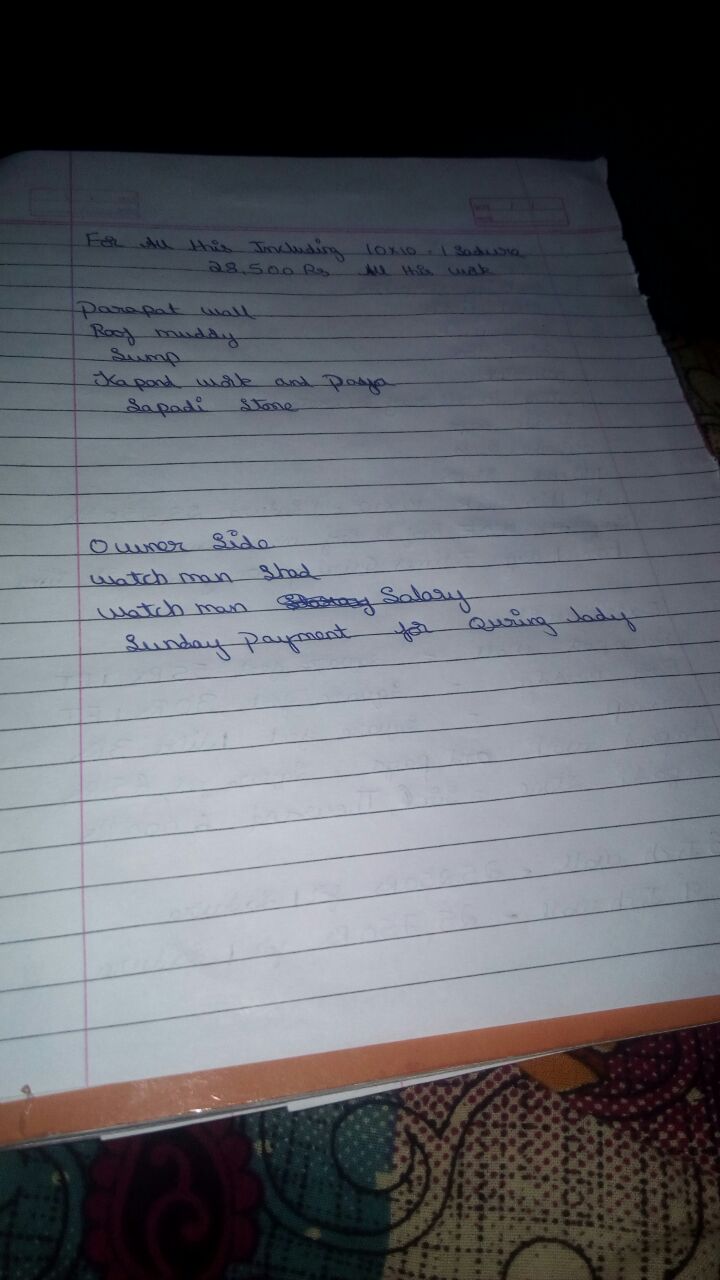 For All This Including 10x10 = 1 Sadura
28,500 Rs All this work
Parapat wall
Roof muddy
Sump
Kapond work and Paaya
Sapadi Stone
Owner Side
watch man Shad
watch man Salary
Sunday Payment for Quring lady